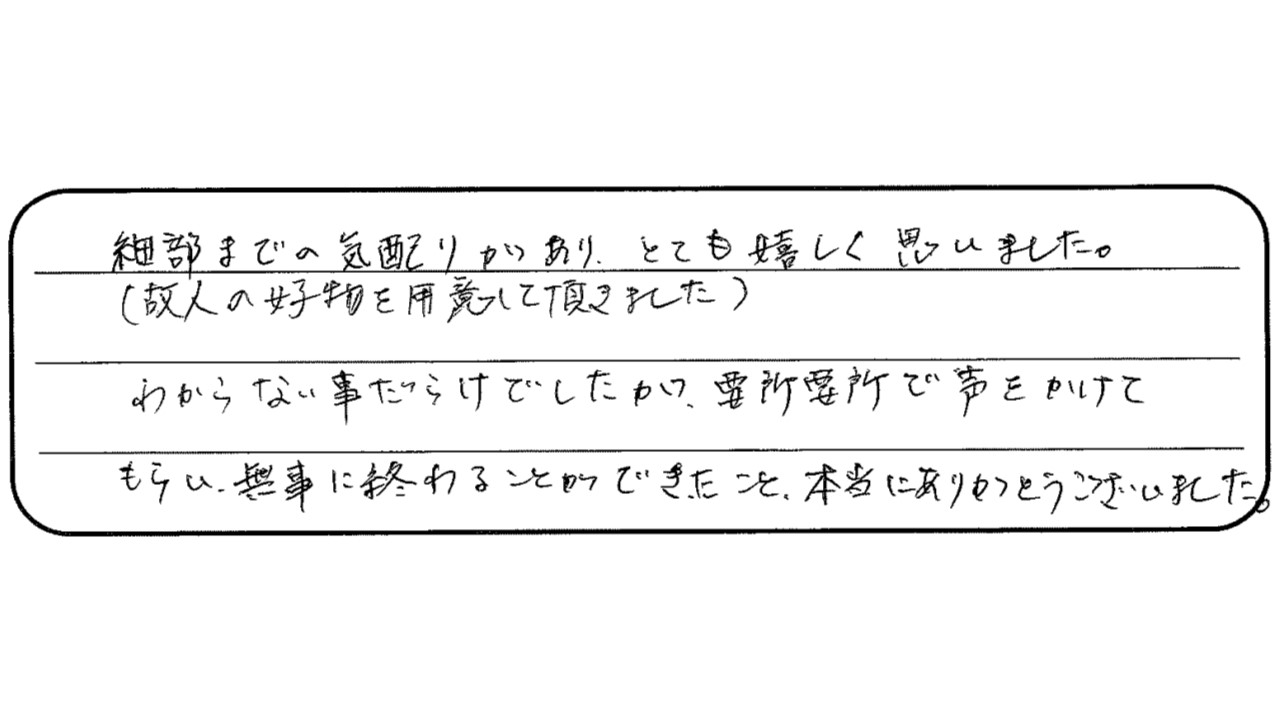 細部までの気配りがあり、とても嬉しく思いました。
(故人の好物を用意して頂きました)
わからない事だらけでしたが、要所要所で声をかけて
もらい、無事に終わることができたこと、本当にありがとうございました。